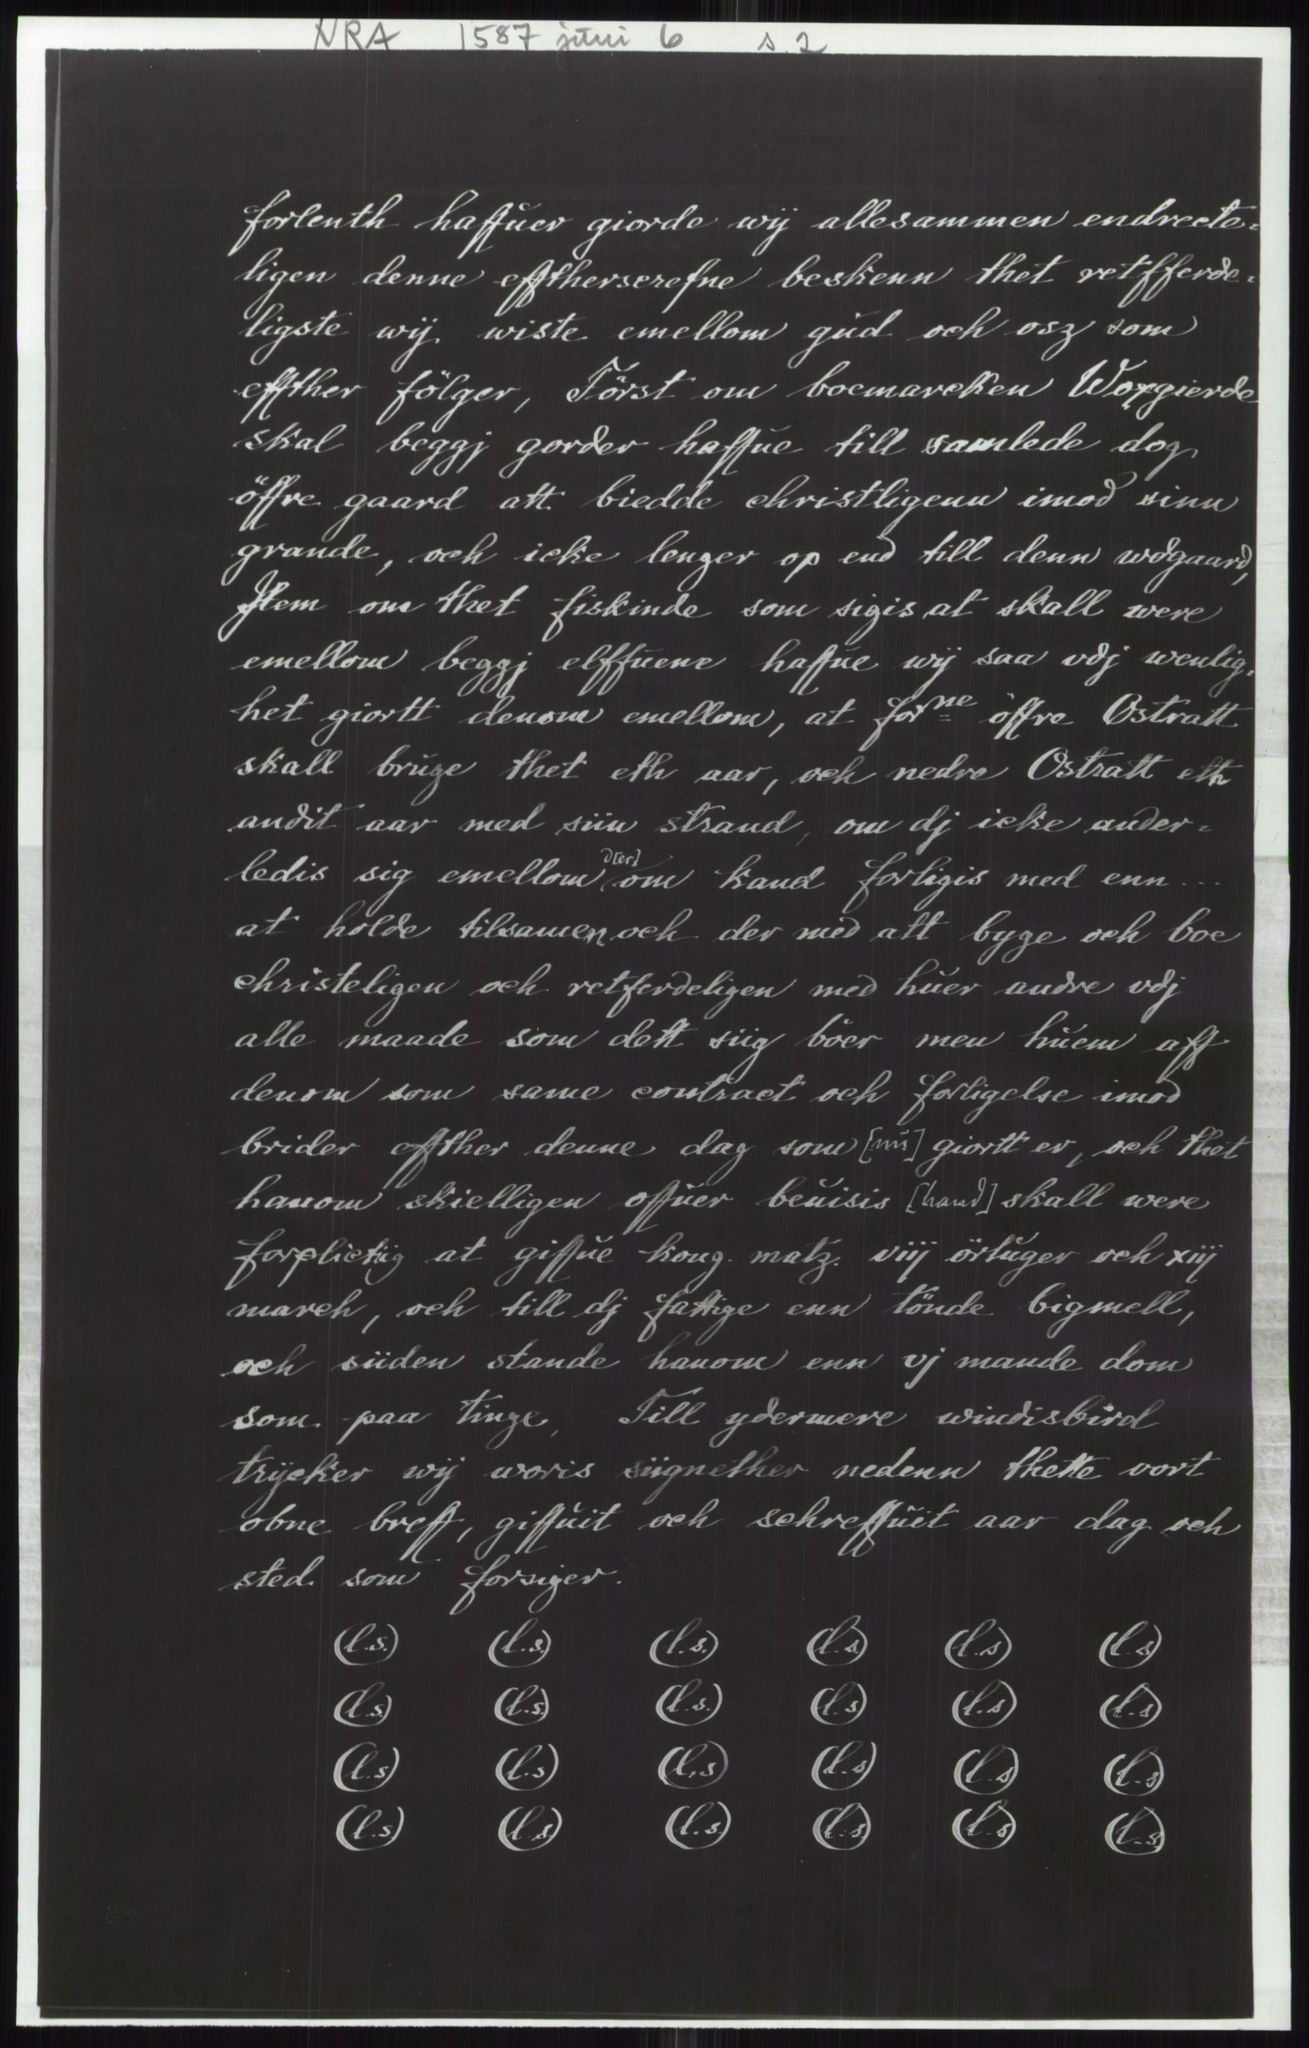 NRA 1587 juni 6 s. 2
forlenth haffuer giorde wij allesammen endrecte-
ligen denne efftherscrefne beskenn thet retfferde-
ligste wij wiste emellom gud och osz som
effther fölger, Först om boemarcken Woxgierde
skal beggj gorder haffue till samlede dog
öffre gaard att biedde christligenn imod sinn
grande, och icke lenger op end till denn wdgaard,
Jtem om thet fiskinde som sigis at skall were
emellom beggj elffuene haffue wij saa vdj wenlig-
het giortt denom emellom, at forne öffre Ostratt
skall bruge thet eth aar, och nedre Ostratt eth
andit aar med siin strand, om dj icke ander-
ledis sig emellom d[er] om kand forligis med enn ...
at holde tilsamen och der med att byge och boe
christeligen och retferdeligen med huer andre vdj
alle maade som dett siig böer men huem aff
denom som same contract och forligelse imod
brider effther denne dag som [nu] giortt er, och thet
hanom skielligen offuer beuisis [hand] skall were
forplictiig at giffue kong. matz. viij örtuger och xiij
march, och till dj fattige enn tönde bigmell,
och siiden stande hanom enn vj mande dom
som paa tinge, Till ydermere windisbird
trycker wij woris siignether nedenn thette vort
obne breff, giffuit och schreffuit aar dag och
sted som forsiger.
(l.s.) (l.s.) (l.s.) (l.s) (l.s) (l.s)
(l.s.) (l.s.) (l.s.) (l.s) (l.s) (l.s)
(l.s) (l.s) (l.s) (l.s) (l.s) (l.s)
(l.s) (l.s.) (l.s) (l.s.) (l.s) (l.s)